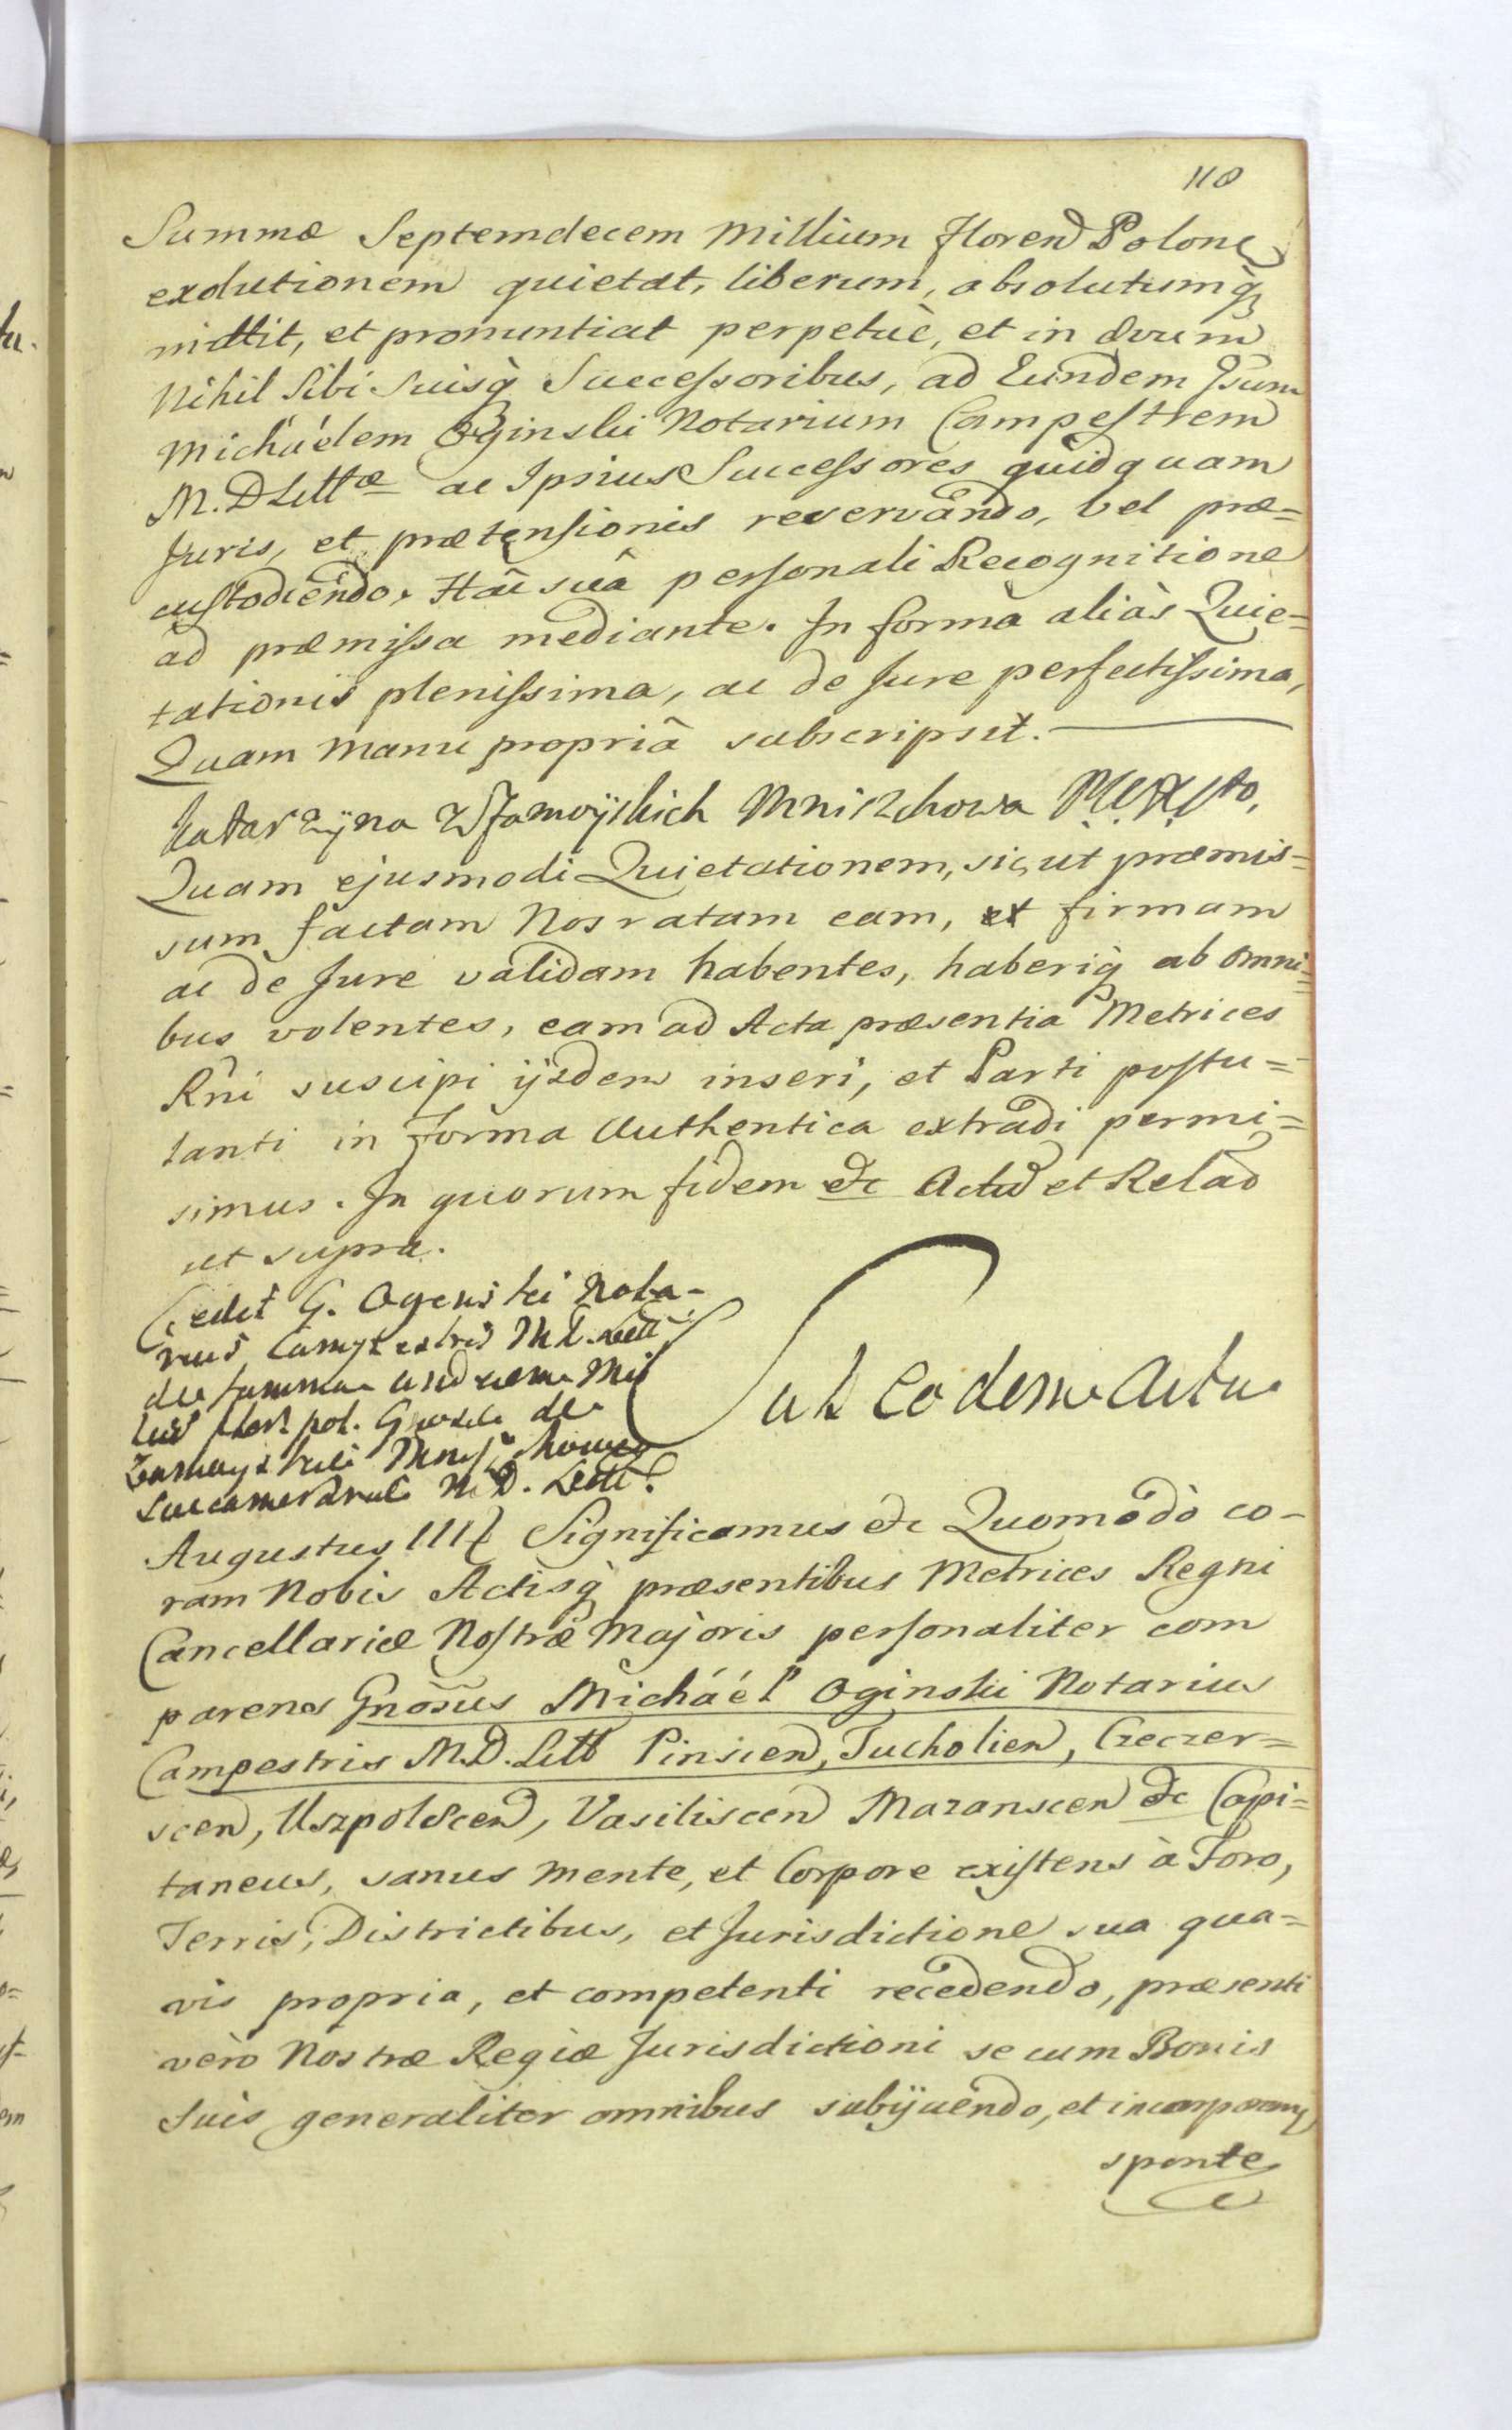 118
Summæ Septemdecem Millium Floren Polonc
exolutionem quietat, liberum, absolutumq3
mittit, et pronuntiat perpetuè, et in ævum
Nihil Sibi Suisq̀ Successoribus, ad Eundem Gsum
Michaelem Oginski Notarium Campestrem
M. D Litt æ ac Ipsius Successores quidquam
Juris, et prætensionis reservando, vel præ=
custodiendo, Hac suâ personali Recognitione
ad præmissa mediante. In forma aliàs Quie=
tationis plenissima, ac de Jure perfectissima,
Quam Manu propriâ subscripsit.
Katarzÿna Z Zamoÿskich Mniszchowa
Quam ejusmodi Quietationem, sic, ut præmis=
sum factam Nos ratam eam, et firmam
ac de Jure validam habentes, haberiq̀ ab omni=
bus volentes, eam ad Acta præsentia Metrices
Rñi suscipi ijsdem inseri, et Parti postu=
lanti in Forma Authentica extradi permi=
simus. In quorum fidem &c Actū et Relad
ut supra.
Cedit G. Oginski Nota-
rius Campestris M D. Litt
de summa Millib
lius flor. pol. Grosæ de
Zamoyskie Mniszchowa
Succamerariæ M. D. Litt.
Sub Eodem Actu
Augustus III{ Significamus &c Quomodò co-
ram Nobis Actisq̀ præsentibus Metrices Regni
Cancellariæ Nostræ Majoris personaliter com
parens Gnosus Michaél Oginski Notarius
Campestris M.D. Litt Pinscen, Tucholien, Czeczer=
scen, Uszpolscen, Vasiliscen Mazanscen &c Capi=
taneus, sanus mente, et Corpore existens à Foro,
Terris, Districtibus, et Jurisdictione sua qua=
vis propria, et competenti recedendo, præsenti
verò Nostræ Regiæ Jurisdictioni se cum Bonis
suis generaliter omnibus subijciendo, et incorporans
sponte